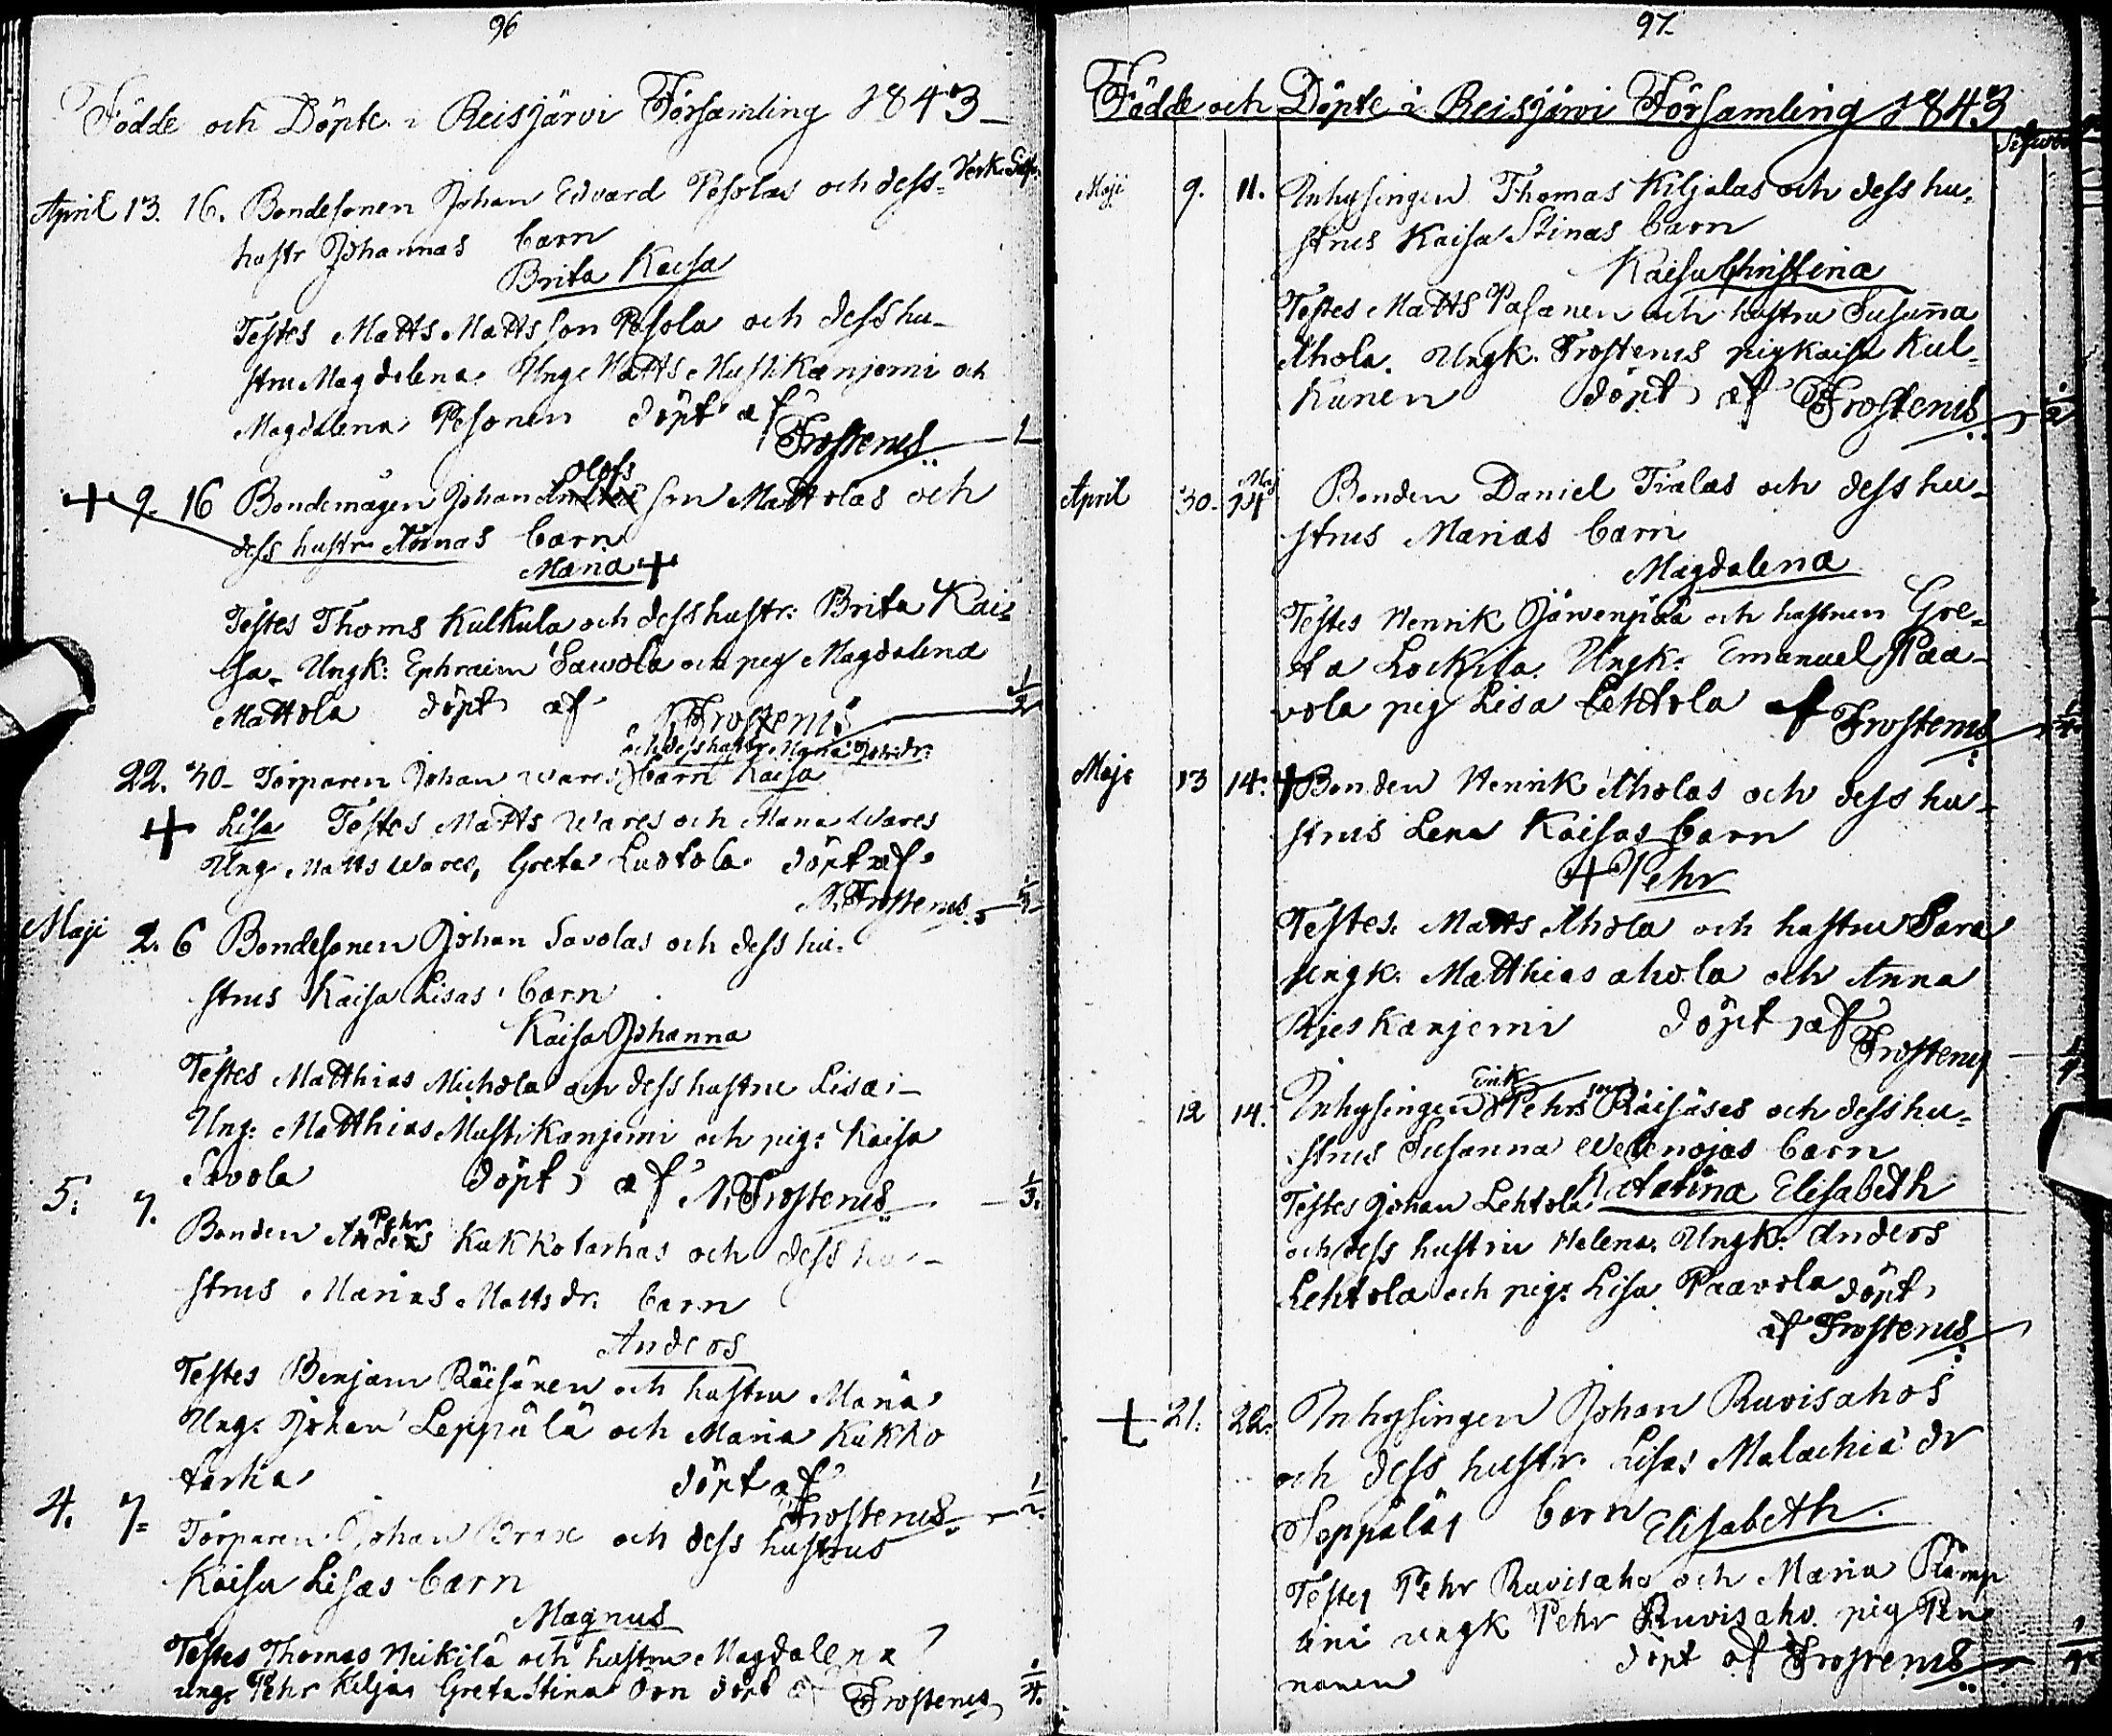 96
Födde och Döpte i Reisjärvi Församling 1843
April 13. 16. Bondesonen Johan Edvard Pesolas och dess
hustr Johannas barn
Brita Kaisa
Testes Matts Mattsson Pesola och dess hu-
stru Magdelena. Ung. Matts Mustikanjemi och
Magdalena Pesonen döpt af
Frostenus 1
9. 16 Bondemågen Johan Olofs son Mattolas och
dess hustr Annas barn
Maria
Testes Thoms Kulkula och dess hustr: Brita Kai-
sa. Ungk: Ephraim Savola och pig Magdalena
Mattola döpt af
N. Frostenus 1/2
och dess hustr Maria Johsdr:
22. 30 Torparen Johan Wares barn Kaisa
Lisa Testes Matts Wares och Maria Wares
Ung Matts Wares, Greta Luotola döpt af
N. Frostenus
Maji 2. 6 Bondesonen Johan Savolas och dess hu-
strus Kaisa Lisas barn
Kaisa Johanna
Testes Matthias Michola och dess hustru Lisa
Ung: Matthias Mustikanjemi och pig: Kaisa
Savola döpt af N. Frostenus 1/3.
Pehr
5. 7. Bonden Anders Kukkotarhas och dess hu-
strus Marias Mattsdr. barn
Anders
Testes Benjam Räisänen och hustru Maria
Ung. Johan Leppälä och Maria Kukko
tarha döpt af
Frostenus 1/2.
4. 7. Torparen Johan Brax och dess hustrus
Kaisa Lisas barn
Magnus
Testes Thomas Heikilä och hustru Magdalena
ung. Pehr Kiljas Greta Stina döpt af Frostenus 1/4.
97.
Födde och Döpte i Reisjärvi Församling 1843
Maji 9. 11. Inhysingen Thomas Kiljalas och dess hu-
strus Kaisa Stinas barn
Kaisa Christina
Testes Matts Pasanen och hustru Susanna
Ahola. Ungk. Frostenus pig Kaisa Kul-
kunen döpt af Frostenus 1/2
Maj
April 30. 14 Bonden Daniel Tialas och dess hu-
strus Marias barn
Magdalena
Testes Henrik Järvenpää och hustrun Gre-
ta Lockila. Ungk: Emanuel Paa-
vola pig Lisa Lehtola af Frostenus 1/4
Maji 13 14. Bonden Henrik Aholas och dess hu-
strus Lena Kaisas barn
Pehr
Testes. Matts Ahola och hustru Sara
Ungk. Matthias ahola och Anna
Kanjemi döpt af
Frostenus
Erik
12 14. Inhysingen Pehrs son Räisäses och dess hu-
strus Susanna Wetenojas barn
Katarina Elisabeth
Testes Johan Lehtola
och dess hustru Helena. Ungk: Anders
Lehtola och pig: Lisa Paavola döpt
af Frostenus
21. 22. Inhysingen Johan Ruvisahos
och dess hustr. Lisas Malachia dr
Seppäläs barn Elisabeth.
Testes Pehr Ruvisaho och Maria Kämp
ungk Pehr Ruvisaho pig Pen
nanen döpt af Frostenus